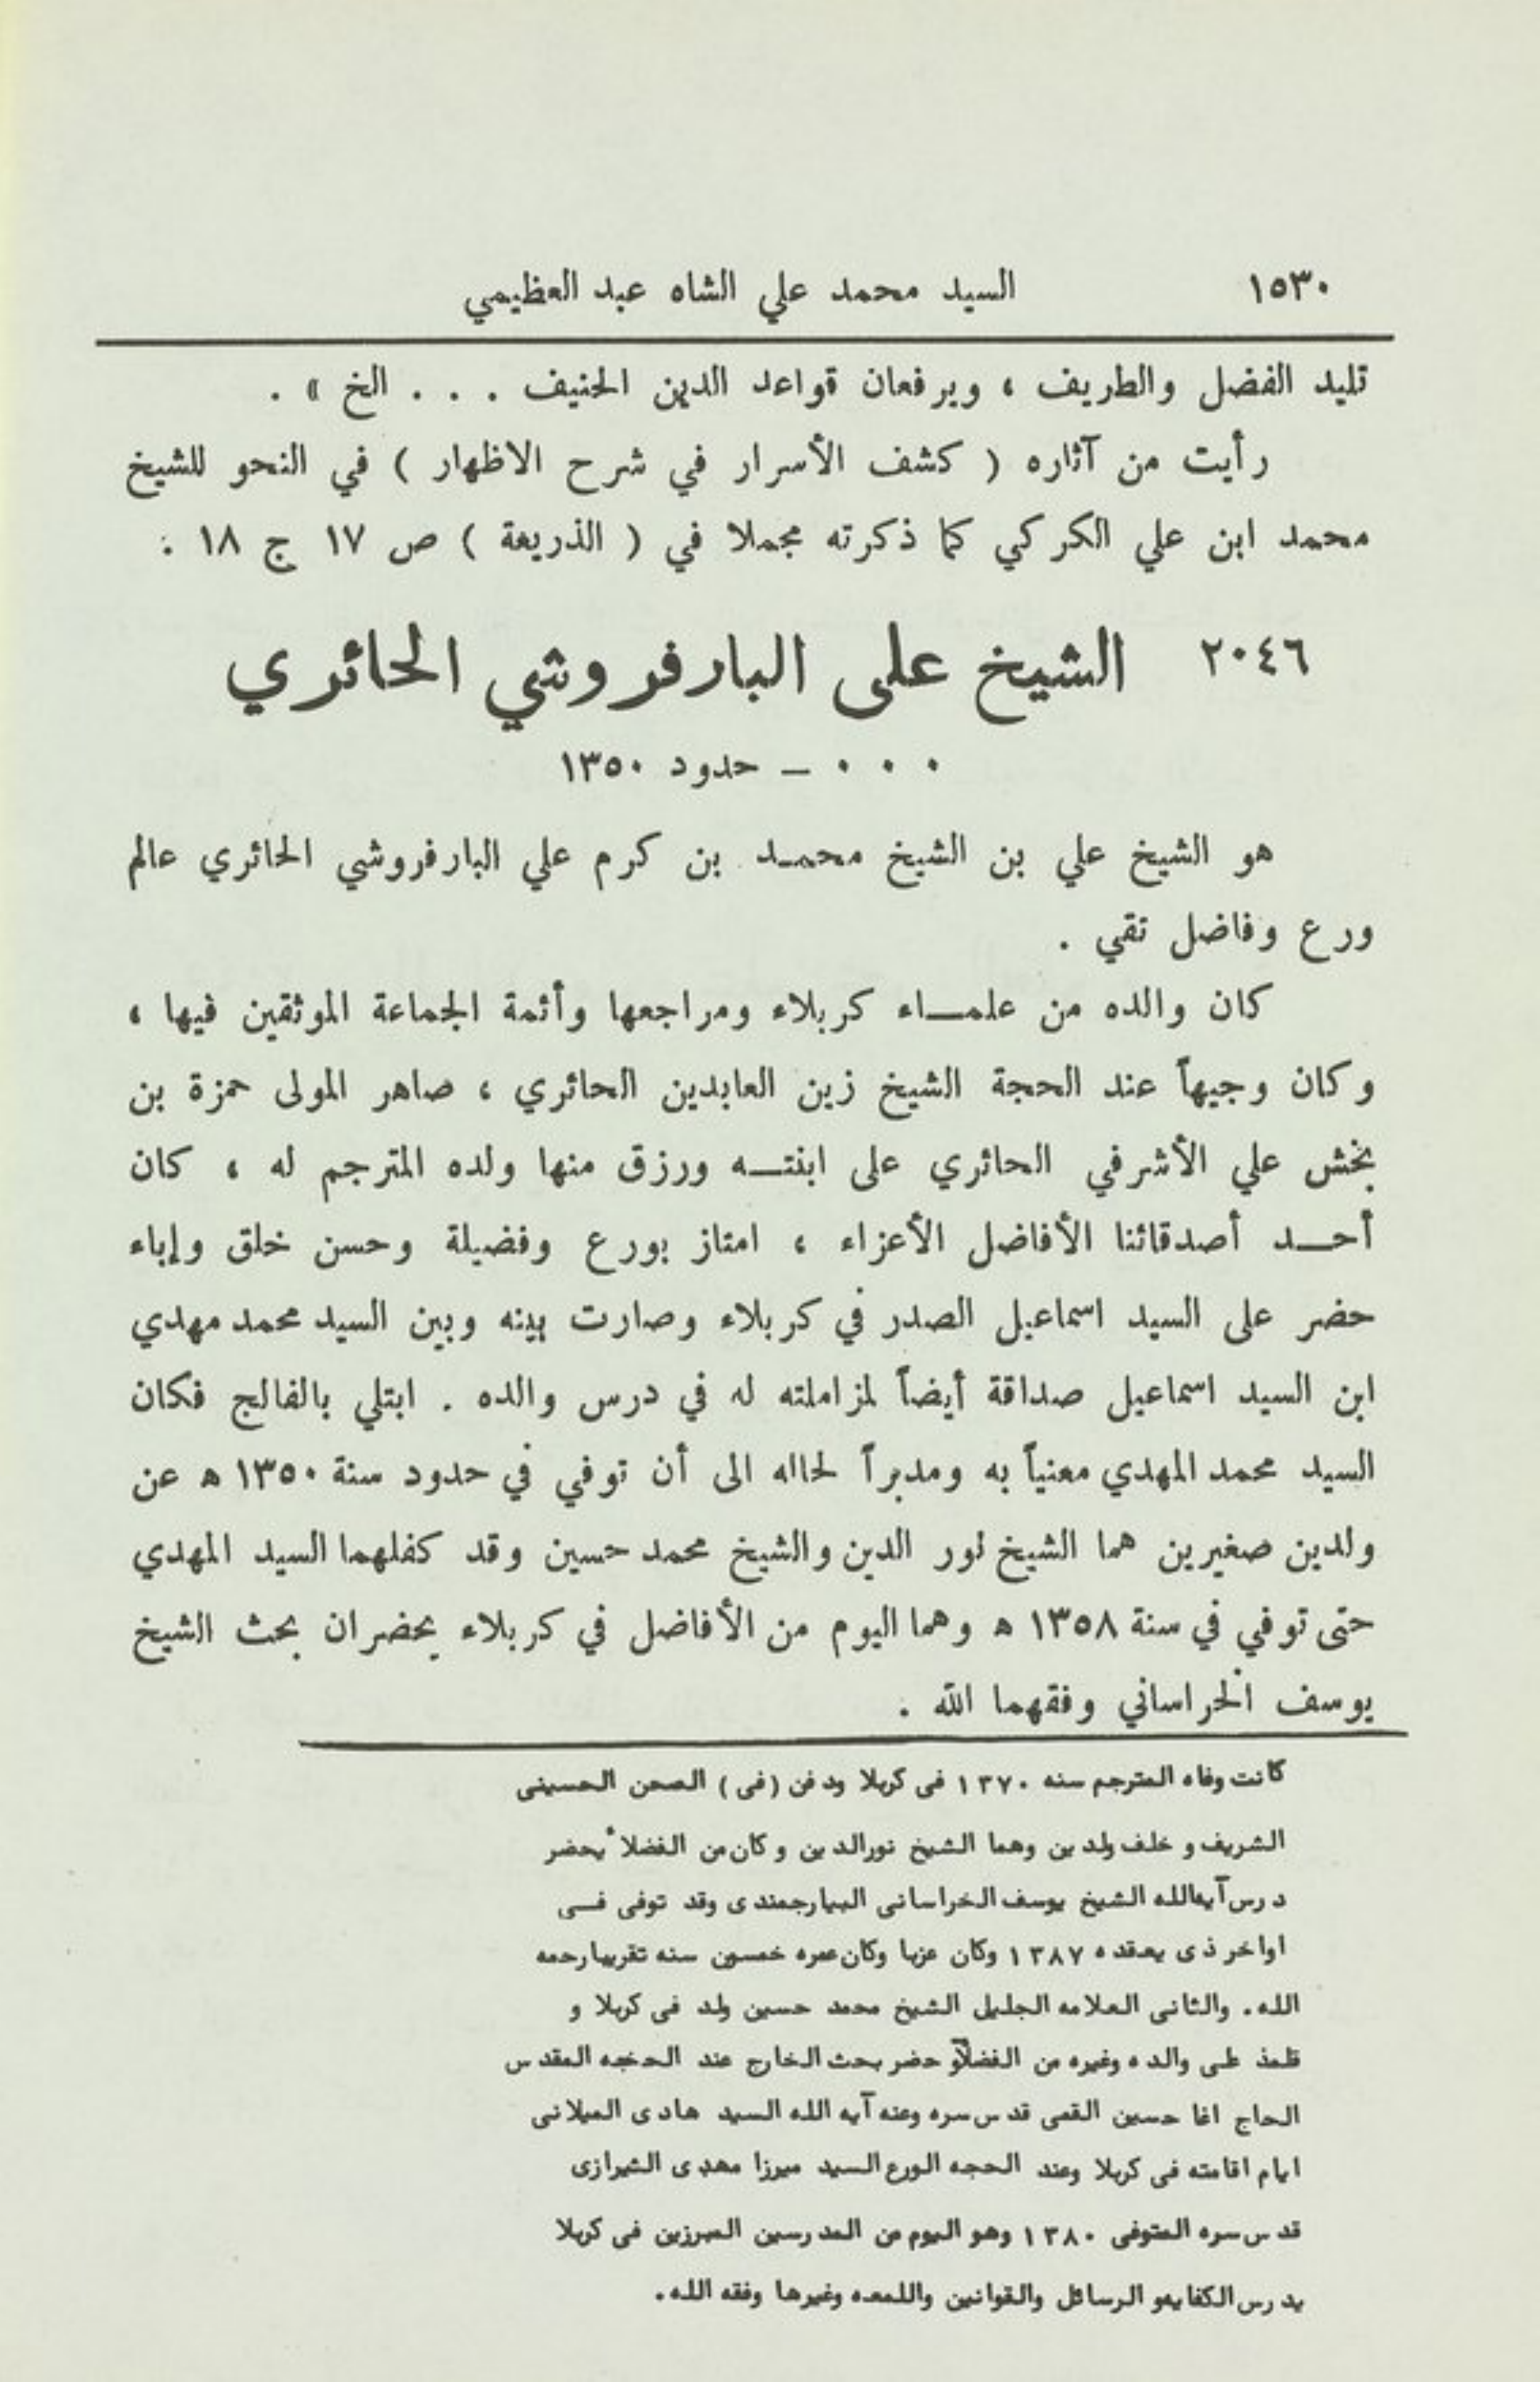 ١٥٣٠ السيد محمد علي الشاه عبد العظيمي
تليد الفضل والطريف ، ويرفعان قواعد الدين الحنيف . . . الخ » .
رأيت من آثاره ( كشف الأسرار في شرح الاظهار ) في النحو للشيخ
محمد ابن علي الكركي كما ذكرته مجملا في ( الذريعة ) ص ١٧ ج ١٨ .
٢٠٤٦ الشيخ على البارفروشي الحائري
٠ ٠ ٠ – حدود ١٣٥٠
هو الشيخ علي بن الشيخ محمـد بن كرم علي البارفروشي الحائري عالم
ورع وفاضل تقي .
كان والده من علمـاء كربلاء ومراجعها وأئمة الجماعة الموثقين فيها ،
وكان وجيهاً عند الحجة الشيخ زين العابدين الحائري ، صاهر المولى حمزة بن
بخش علي الأشرفي الحائري على ابنتـه ورزق منها ولده المترجم له ، كان
أحـد أصدقائنا الأفاضل الأعزاء ، امتاز بورع وفضيلة وحسن خلق وإباء
حضر على السيد اسماعيل الصدر في كربلاء وصارت بينه وبين السيد محمد مهدي
ابن السيد اسماعيل صداقة أيضاً لمزاملته له في درس والده . ابتلي بالفالج فكان
السيد محمد المهدي معنياً به ومدبراً لحاله الى أن توفي في حدود سنة ١٣٥٠ ه عن
ولدين صغيرين هما الشيخ نور الدين والشيخ محمد حسين وقد كفلهما السيد المهدي
حتى توفي في سنة ١٣٥٨ ه وهما اليوم من الأفاضل في كربلاء يحضران بحث الشيخ
يوسف الخراساني وفقهما الله .
كانت وفاه المترجم سنه ١٣٧٠ فى كربلا ودفن (فى) الصحن الحسينى
الشريف و خلف ولدين وهما الشيخ نورالدين وكان من الفضلاء يحضر
درس آيةالله الشيخ يوسف الخراسانى البيارجمندى وقد توفى فـى
اواخر ذى يعقده ١٣٨٧ وكان عزبا وكان عمره خمسين سنه تقريبا رحمه
الله. والثانى العلامه الجليل الشيخ محمد حسين ولد فى كربلا و
تلمذ على والده وغيره من الفضلآو حضر بحث الخارج عند الحجه المقدس
الحاج اغا حسين القمى قدس سره وعنه آيه الله السيد هادى الميلانى
ايام اقامته فى كربلا وعند الحجه الورع السيد ميرزا مهدى الشيرازى
قدس سره المتوفى ١٣٨٠ وهو اليوم من المدرسين المبرزين فى كربلا
يدرس الكفايهو الرسائل والقوانين واللمعه وغيرها وفقه الله.